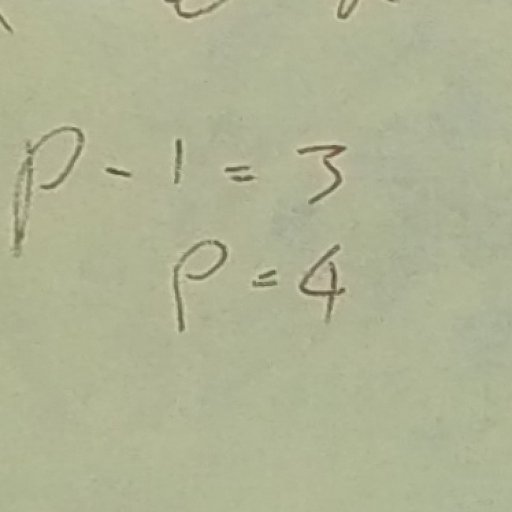 p - 1 = 3
p = 4